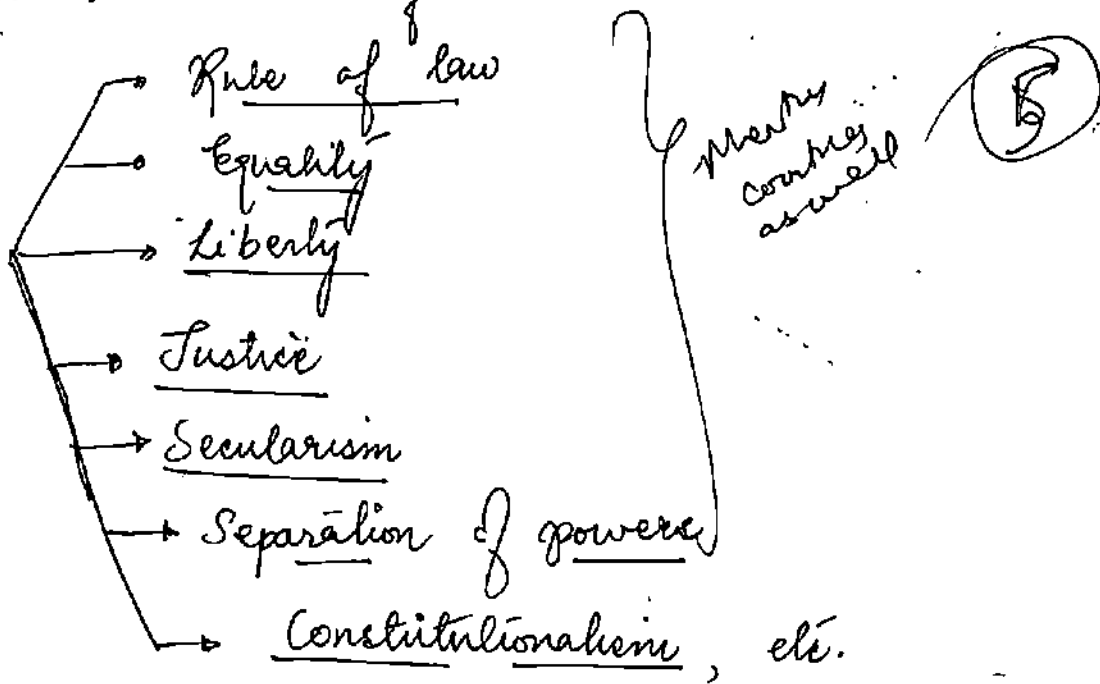 Rule of law
Equality
Liberty
Justice
Secularism
Separation of powers
Constitutionalism, etc.
countries
as well